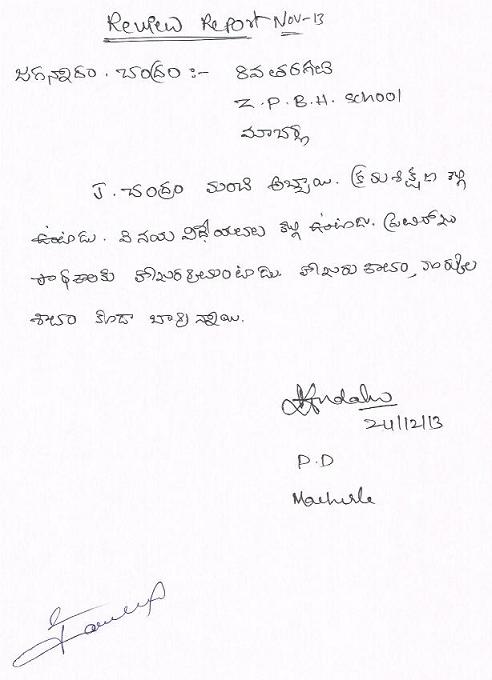 Review Report Nov-13
జగన్నాధం. చంద్రం :- 8వ తరగతి
Z.P.B.H. School
మాచర్ల
J. చంద్రం మంచి అబ్బాయి. క్రమశిక్షణ కల్గి
ఉంటాడు. వినయ విధేయతలు కల్గి ఉంటాడు. ప్రతిరోజు
పాఠశాలకు హాజరగుచుంటాడు. హాజరు శాతం, మార్కుల
శాతం కూడా బాగున్నాయి.
24/12/13
P.D
Macherla